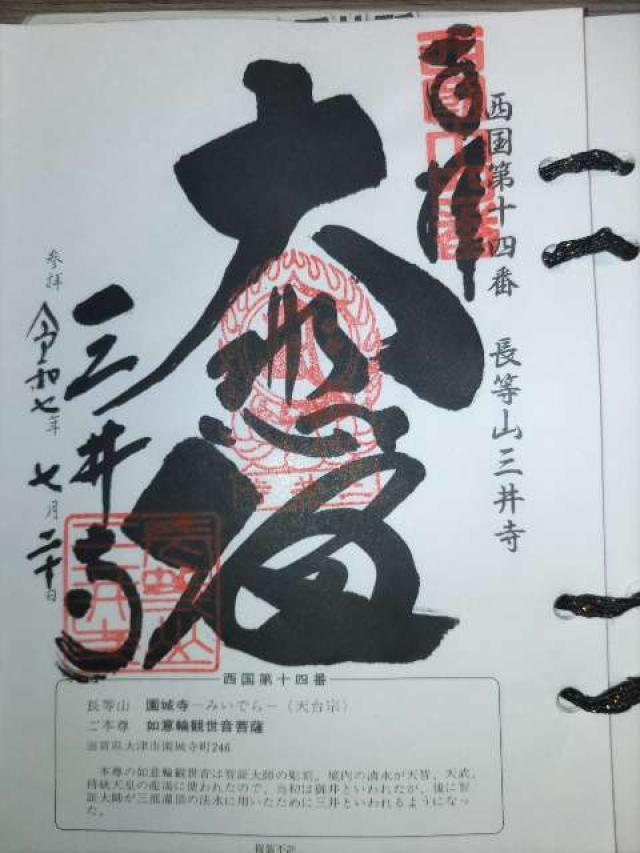 奉拝
西国第十四番 長等山三井寺
大悲殿
三井寺
参拝
令和七年 七月二十日
西国第十四番
長等山 園城寺－みいでら－（天台宗）
ご本尊 如意輪観世音菩薩
滋賀県大津市園城寺町246
本尊の如意輪観世音は智証大師の彫刻。境内の清水が天智、天武、
持統天皇の産湯に使われたので、当初は御井といわれたが、後に智
証大師が三部灌頂の法水に用いたために三井といわれるようになっ
た。
複製不許